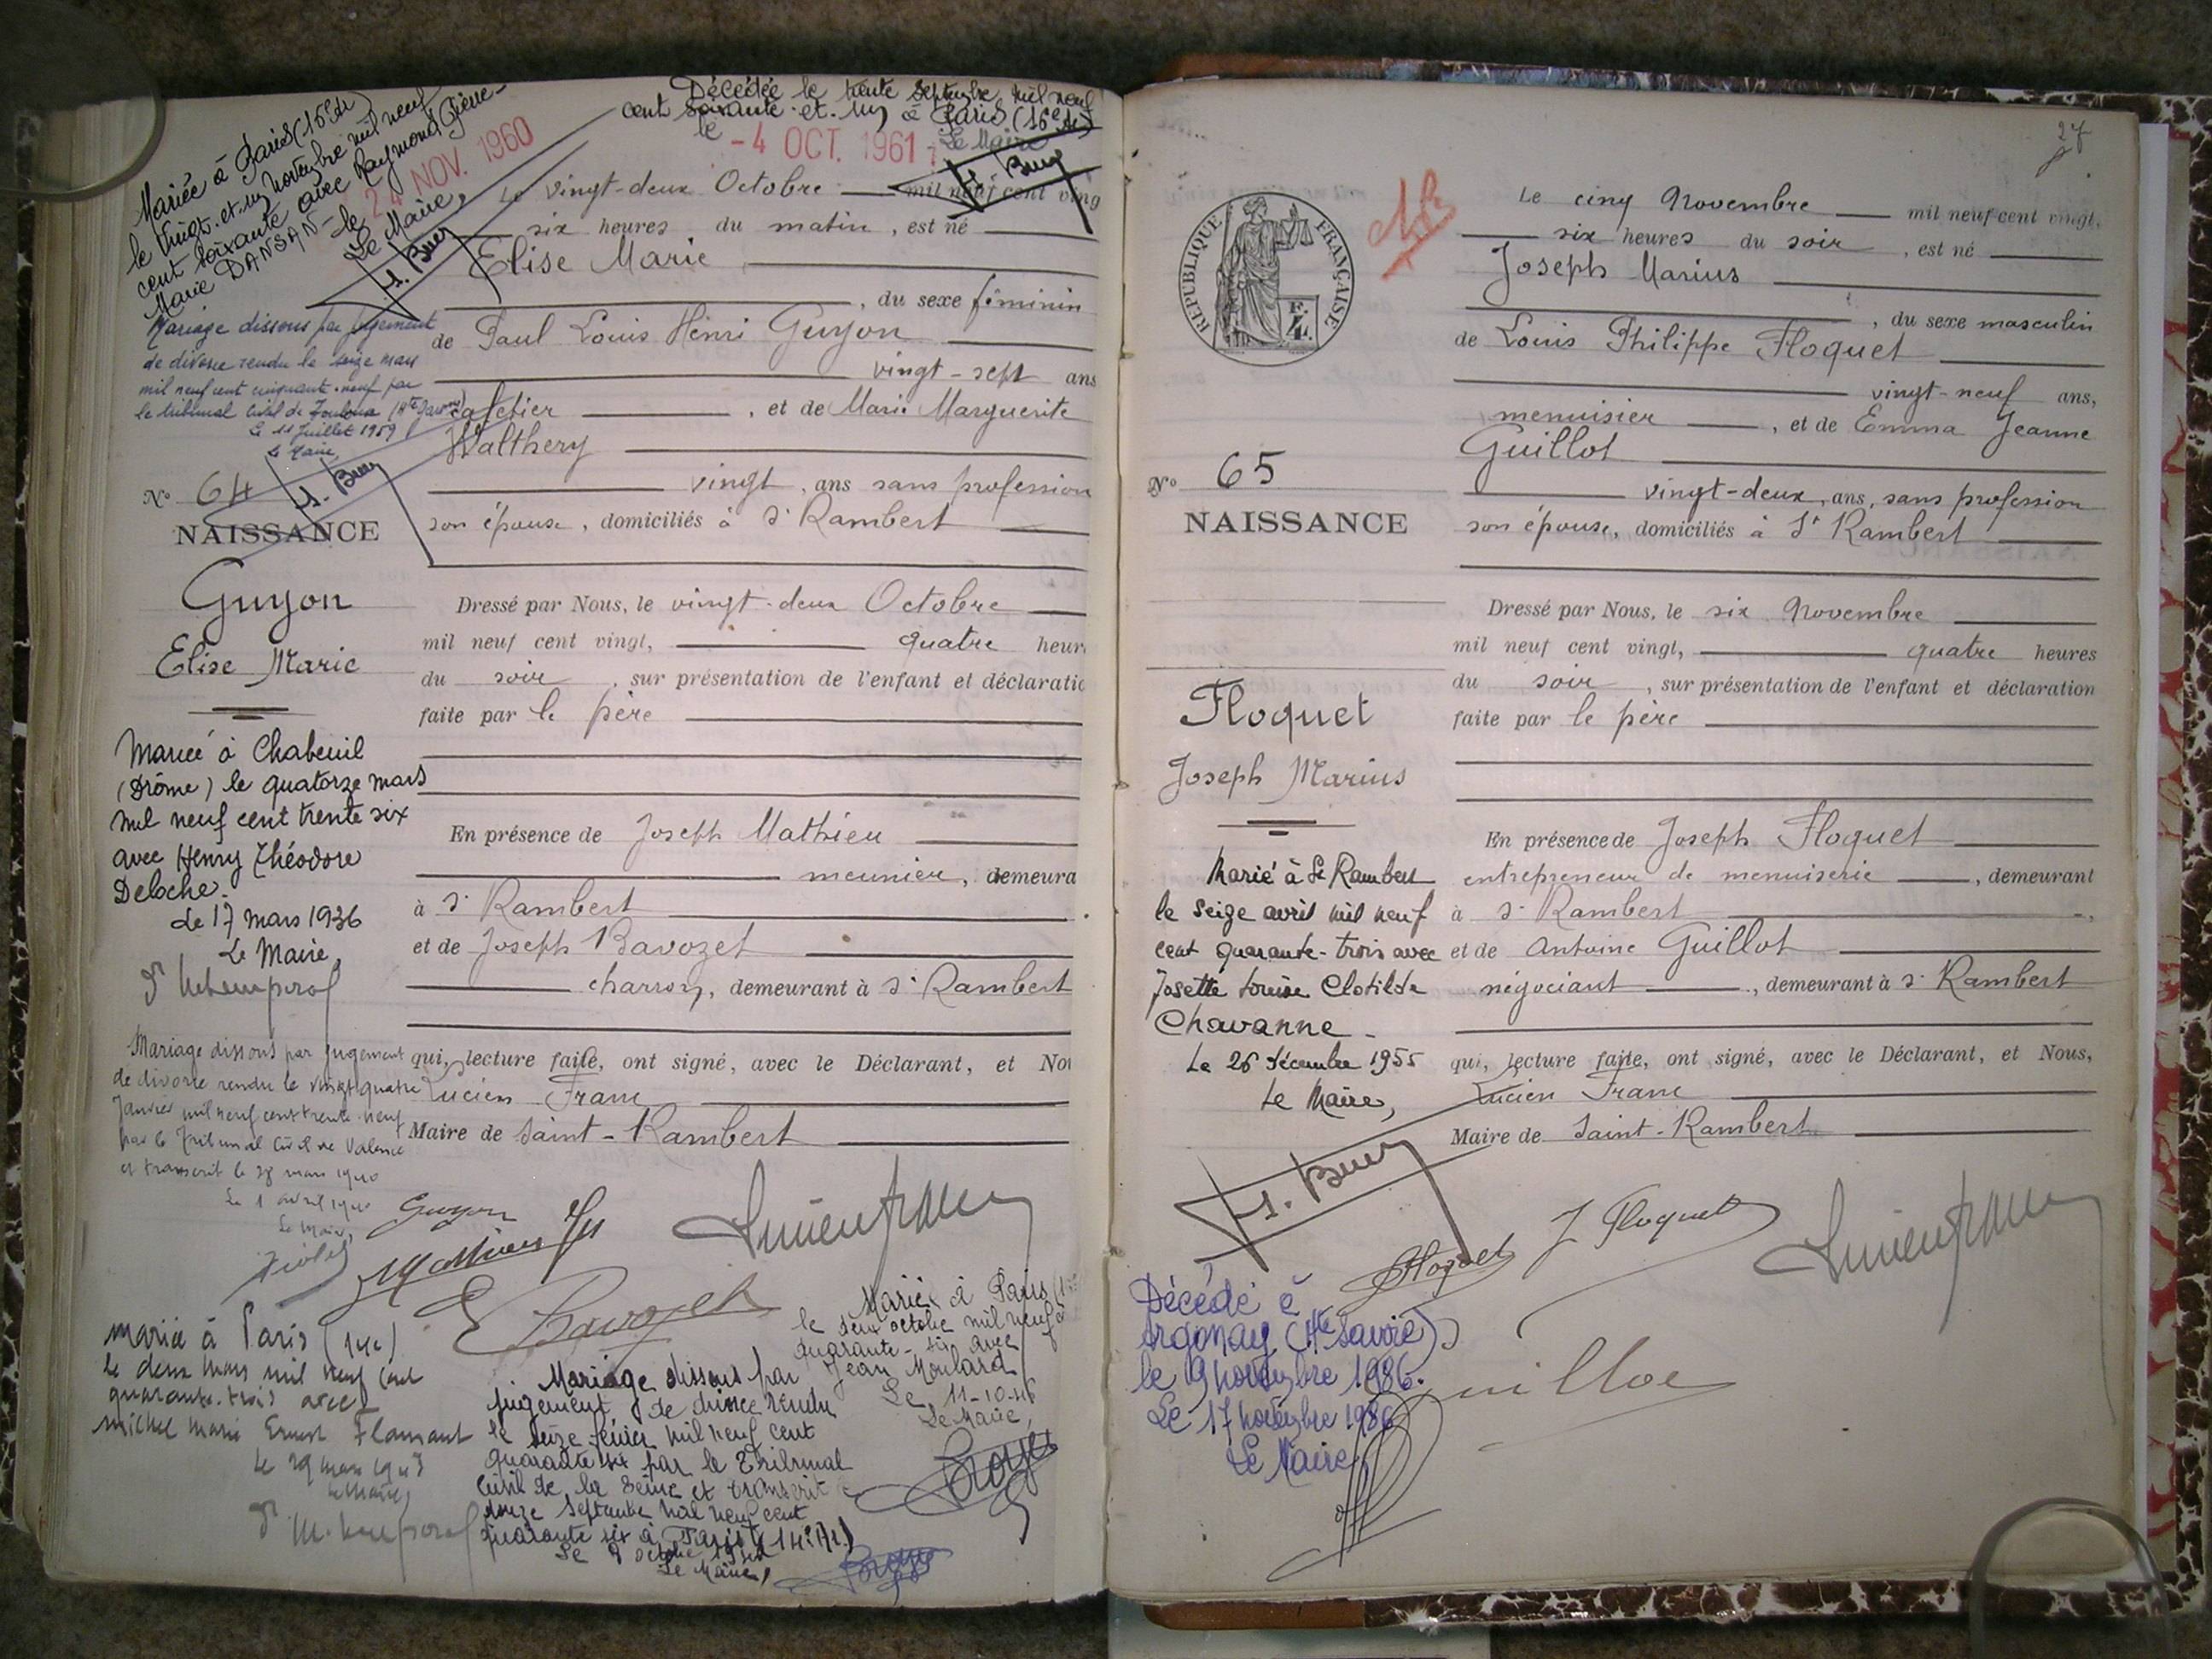 Décédée le trente septembre mil neuf
cent soixante et un à Paris (16e Ar)
le - 4 OCT. 1961
Le Maire
Mariée à Paris (16e Ar)
le vingt-et-un novembre mil neuf
cent soixante avec Raymond
Marie DANSAN - le
24 NOV. 1960
Le Maire,
Mariage dissous par jugement
de divorce rendu le seize mars
mil neuf cent cinquante-neuf par
le tribunal civil de Toulouse (Hte Garonne)
Le 11 Juillet 1959
Le Maire
N° 64
NAISSANCE
Guyon
Elise Marie
Mariée à Chabeuil
(Drôme) le quatorze mars
mil neuf cent trente six
avec Henry Théodore
Deloche.
Le 17 mars 1936
Le Maire,
Mariage dissous par jugement
de divorce rendu le vingt quatre
Janvier mil neuf cent trente neuf
par le Tribunal Civil de Valence
et transcrit le 28 mars 1940
Le 1 avril 1940
Le Maire,
mariée à Paris (14e)
le deux mars mil neuf cent
quarante-trois avec
Michel Marie Ernest Flamant
Le 29 mars 1943
Le Maire,
Le vingt-deux Octobre mil neuf cent ving
six heures du matin, est né
Elise Marie
, du sexe féminin
de Paul Louis Henri Guyon
vingt-sept ans
cafetier , et de Marie Marguerite
Walthery
vingt, ans sans profession
son épouse, domiciliés à St Rambert
Dressé par Nous, le vingt-deux Octobre
mil neuf cent vingt, quatre heur
du soir , sur présentation de l'enfant et déclaratio
faite par le père
En présence de Joseph Mathieu
meunier, demeura
à St Rambert
et de Joseph Bavozet
charron, demeurant à St Rambert
qui, lecture faite, ont signé, avec le Déclarant, et Nou
Lucien Franc
Maire de Saint-Rambert
Guyon
Mathieu
Bavozet
Lucien Franc
Mariée à Paris
le deux octobre mil neuf
quarante-six avec
Jean Moulard
Le 11-10-46
Le Maire,
Mariage dissous par
jugement de divorce rendu
le seize février mil neuf cent
quarante six par le Tribunal
Civil de la Seine et transcrit
septembre mil neuf cent
quarante six à Paris (14e Ar)
Le octobre
Le Maire,
27
RÉPUBLIQUE FRANÇAISE
N° 65
NAISSANCE
Floquet
Joseph Marius
Marié à St Rambert
le seize avril mil neuf
cent quarante-trois avec
Josette Louise Clotilde
Chavanne -
Le 26 décembre 1955
Le Maire,
Décédé à
Argonay (Hte Savoie)
le 9 novembre 1986.
Le 17 novembre 1986
Le Maire
Le cinq Novembre mil neuf cent vingt,
six heures du soir , est né
Joseph Marius
, du sexe masculin
de Louis Philippe Floquet
vingt-neuf ans,
menuisier , et de Emma Jeanne
Guillot
vingt-deux, ans, sans profession
son épouse, domiciliés à St Rambert
Dressé par Nous, le six Novembre
mil neuf cent vingt, quatre heures
du soir , sur présentation de l'enfant et déclaration
faite par le père
En présence de Joseph Floquet
entrepreneur de menuiserie , demeurant
à St Rambert
et de Antoine Guillot
négociant , demeurant à St Rambert
qui, lecture faite, ont signé, avec le Déclarant, et Nous,
Lucien Franc
Maire de Saint-Rambert
Floquet
J Floquet
Lucien Franc
Guillot